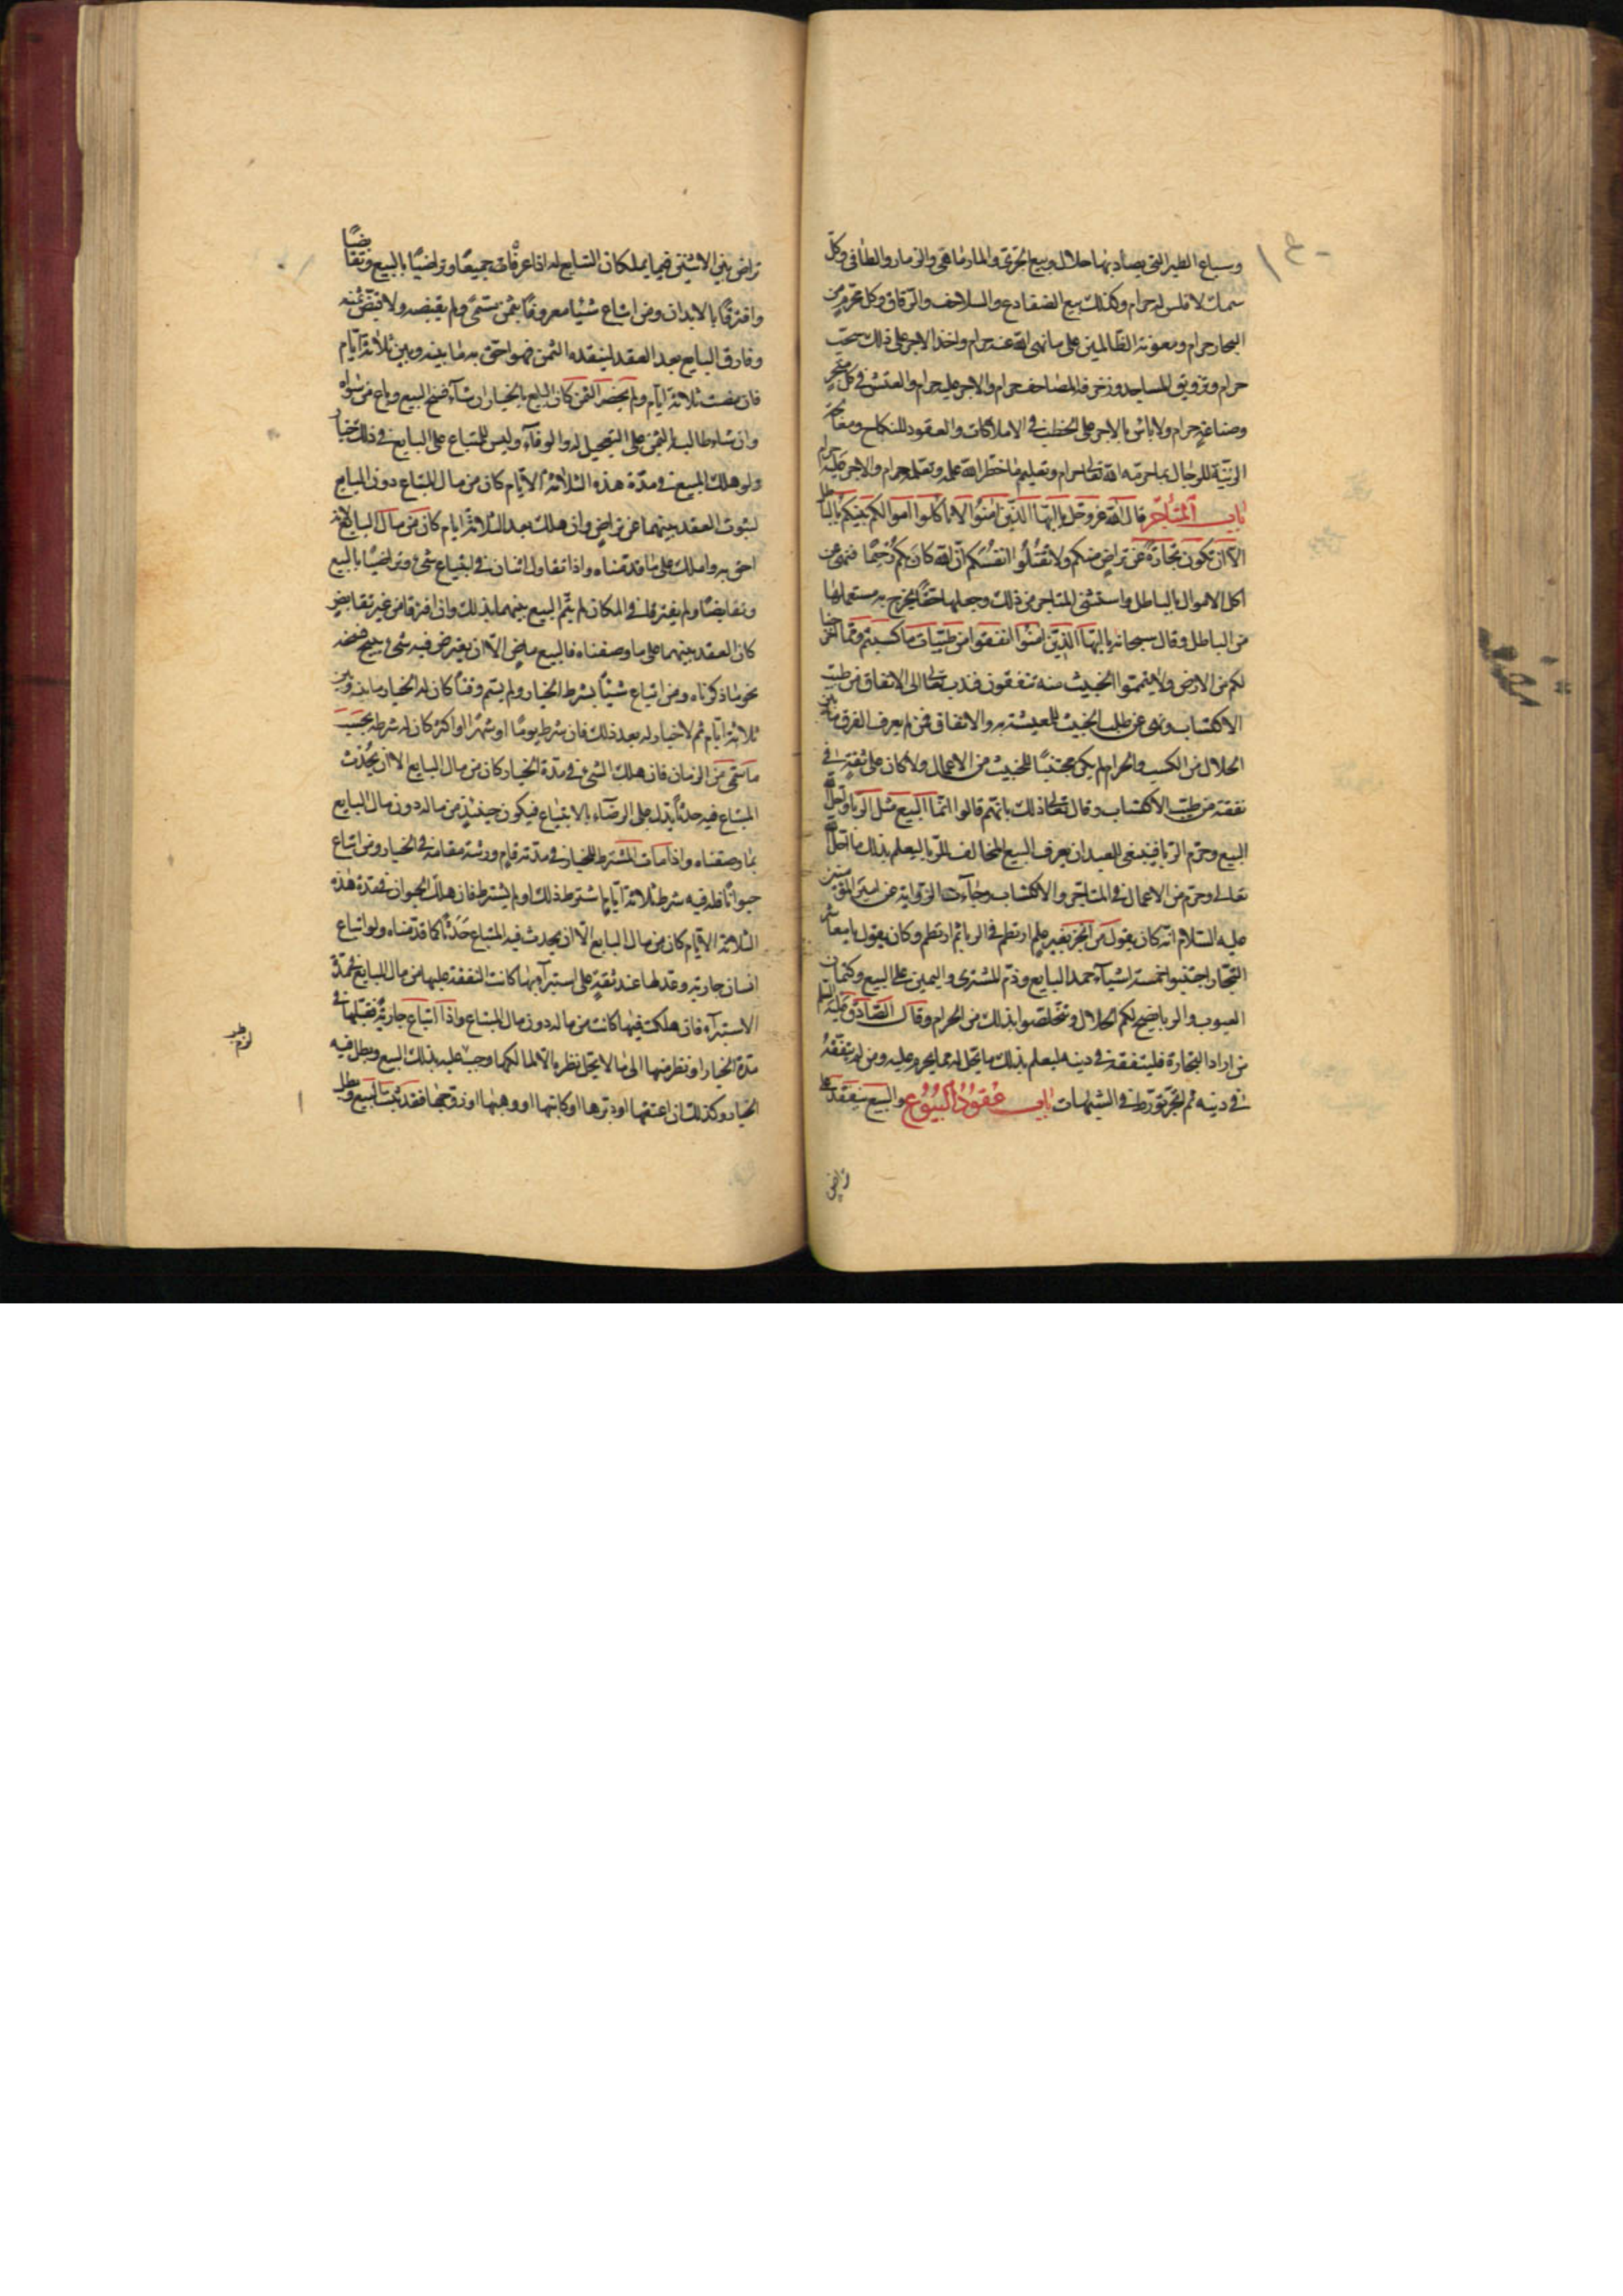 وسباع الطير التي يصاد بها حلال وبيع الجري والمارماهي والزمار والطافي وكل
سمك لا فلس له حرام وكذلك بيع الضفادع والسلاحف والرقاق وكل محرم من
البحار حرام ومعونة الظالمين على ما نهى الله عنه حرام واخذ الاجر على ذلك سحت
حرام وتزويق المساجد وزخرفة المصاحف حرام والاجر عليه حرام والغش في كل متجر
وصناعة حرام ولا باس بالاجر على الخطب في الاملاكات والعقود للنكاح ومعالجة
الزينة للرجال بما حرمه الله تعالى حرام وتعليم ما حظر الله عمله وتعلمه حرام والاجر عليه حرام
باب المتاجر قال الله عز وجل يا ايها الذين امنوا لا تاكلوا اموالكم بينكم بالباطل
الا ان تكون تجارة عن تراض منكم ولا تقتلوا انفسكم ان الله كان بكم رحيما فنهى عن
اكل الاموال بالباطل واستثنى المتاجر من ذلك وجعلها حقا يخرج به مستعملها
من الباطل وقال سبحانه يا ايها الذين امنوا انفقوا من طيبات ما كسبتم ومما اخرجنا
لكم من الارض ولا تيمموا الخبيث منه تنفقون فندب تعالى الى الانفاق من طيب
الاكتساب ونهى عن طلب الخبيث للمعيشة به والانفاق فمن لم يعرف الفرق ما بين
الحلال من الكسب والحرام لم يكن مجتنبا للخبيث من الاعمال ولا كان على ثقة في
نفقته من طيب الاكتساب وقال تعالى ذلك بانهم قالوا انما البيع مثل الربا واحل الله
البيع وحرم الربا فينبغي للعبد ان يعرف البيع المخالف للربا ليعلم بذلك ما احل الله
تعالى وحرم من الاعمال في المتاجر والاكتساب وجاءت الرواية عن امير المؤمنين
عليه السلام انه كان يقول من اتجر بغير علم ارتطم في الربا ثم ارتطم وكان يقول يا معاشر
التجار اجتنبوا خمسة اشياء حمد البايع وذم المشتري واليمين على البيع وكتمان
العيوب والربا يصح لكم الحلال وتتخلصوا بذلك من الحرام وقال الصادق عليه السلم
من اراد التجارة فليتفقه في دينه ليعلم بذلك ما يحل له مما يحرم عليه ومن لم يتفقه
في دينه ثم اتجر تورط في الشبهات باب عقود البيوع والبيع ينعقد على
تراض
تراض بين الاثنين فيما يملكان التبايع له اذا عرفاه جميعا وتراضيا بالبيع وتقابضا
وافترقا بالابدان ومن ابتاع شيئا معروفا بثمن مسمى ولم يقبضه ولا قبض ثمنه
وفارق البايع بعد العقد لينقده الثمن فهو احق به ما بينه وبين ثلاثة ايام
فان مضت ثلاثة ايام ولم يحضر الثمن كان البايع بالخيار ان شاء فسخ البيع وباع من سواه
وان شاء طالبه بالثمن على التعجيل له والوفاء وليس للمبتاع على البايع في ذلك خيار
ولو هلك المبيع في مدة هذه الثلاثة الايام كان من مال المبتاع دون البايع
لثبوت العقد بينهما عن تراض وان هلك بعد الثلاثة ايام كان من مال البايع لانه
احق به واملك على ما قدمناه واذا تقاول اثنان في ابتياع شيء وتراضيا بالبيع
وتقابضا ولم يفترقا في المكان لم يتم البيع بينهما بذلك وان افترقا من غير تقابض
كان العقد بينهما على ما وصفناه فالبيع ماض الا ان يعترض فيه شيء يبيح فسخه
نحو ما ذكرناه ومن ابتاع شيئا بشرط الخيار ولم يسم وقتا كان له الخيار ما بينه وبين
ثلاثة ايام ثم لا خيار له بعد ذلك فان شرط يوما او شهرا او اكثر كان له شرطه بحسب
ما سمى من الزمان فان هلك الشيء في مدة الخيار كان من مال البايع الا ان يحدث
المبتاع فيه حدثا يدل على الرضاء بالابتياع فيكون حينئذ من ماله دون مال البايع
بما وصفناه واذا مات المشترط للخيار في مدته قام ورثته مقامه في الخيار ومن ابتاع
حيوانا فله فيه شرط ثلاثة ايام اشترط ذلك او لم يشترط فان هلك الحيوان في مدة هذه
الثلاثة الايام كان من مال البايع الا ان يحدث فيه المبتاع حدثا كما قدمناه ولو ابتاع
انسان جارية وعدلها عند ثقة على استبرائها كانت النفقة عليها من مال البايع في مدة
الاستبراء فان هلكت فيها كانت من ماله دون مال المبتاع واذا ابتاع جارية فقبلها في
مدة الخيار او نظر منها الى ما لا يحل نظره الا لمالكها وجب عليه بذلك البيع وبطل فيه
الخيار وكذلك ان اعتقها او دبرها او كاتبها او وهبها او زوجها فقد ثبت البيع وبطل